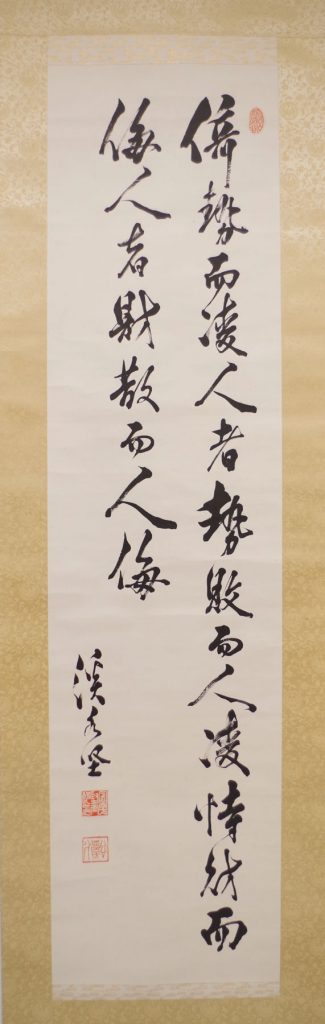 倚勢而凌人者勢敗而人凌恃財而
侮人者財散而人侮